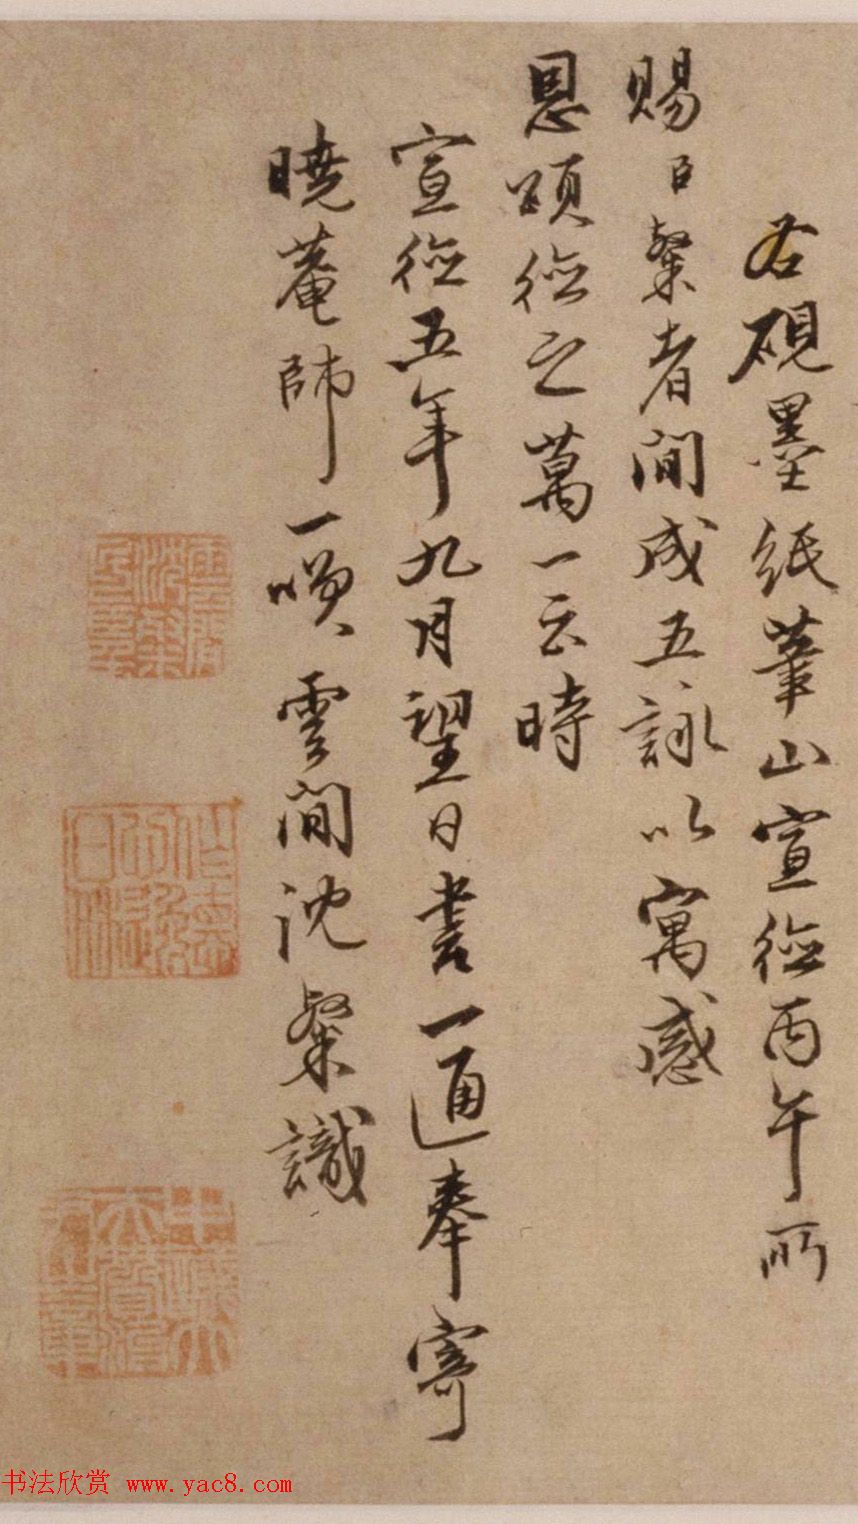 右硯墨紙筆山宣德丙午所
賜臣粲者間成五詠以寓感
恩頌德之萬一云時
宣德五年九月望日書一通奉寄
曉菴師一噗雲間沈粲識
书法欣赏 www.yac8.com